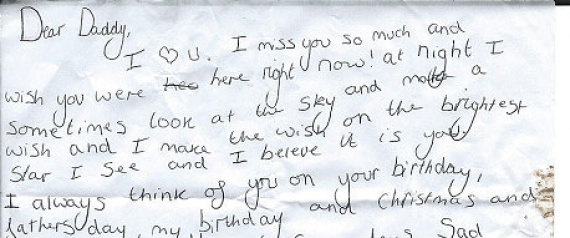 Dear Daddy,
I ♡ U. I miss you so much and
wish you were here right now! at night I
sometimes look at the sky and make a
wish and I make the wish on the brightest
Star I see and I beleve it is you
I always think of you on your birthday,
fathers day, my birthday and christmas and
Sad